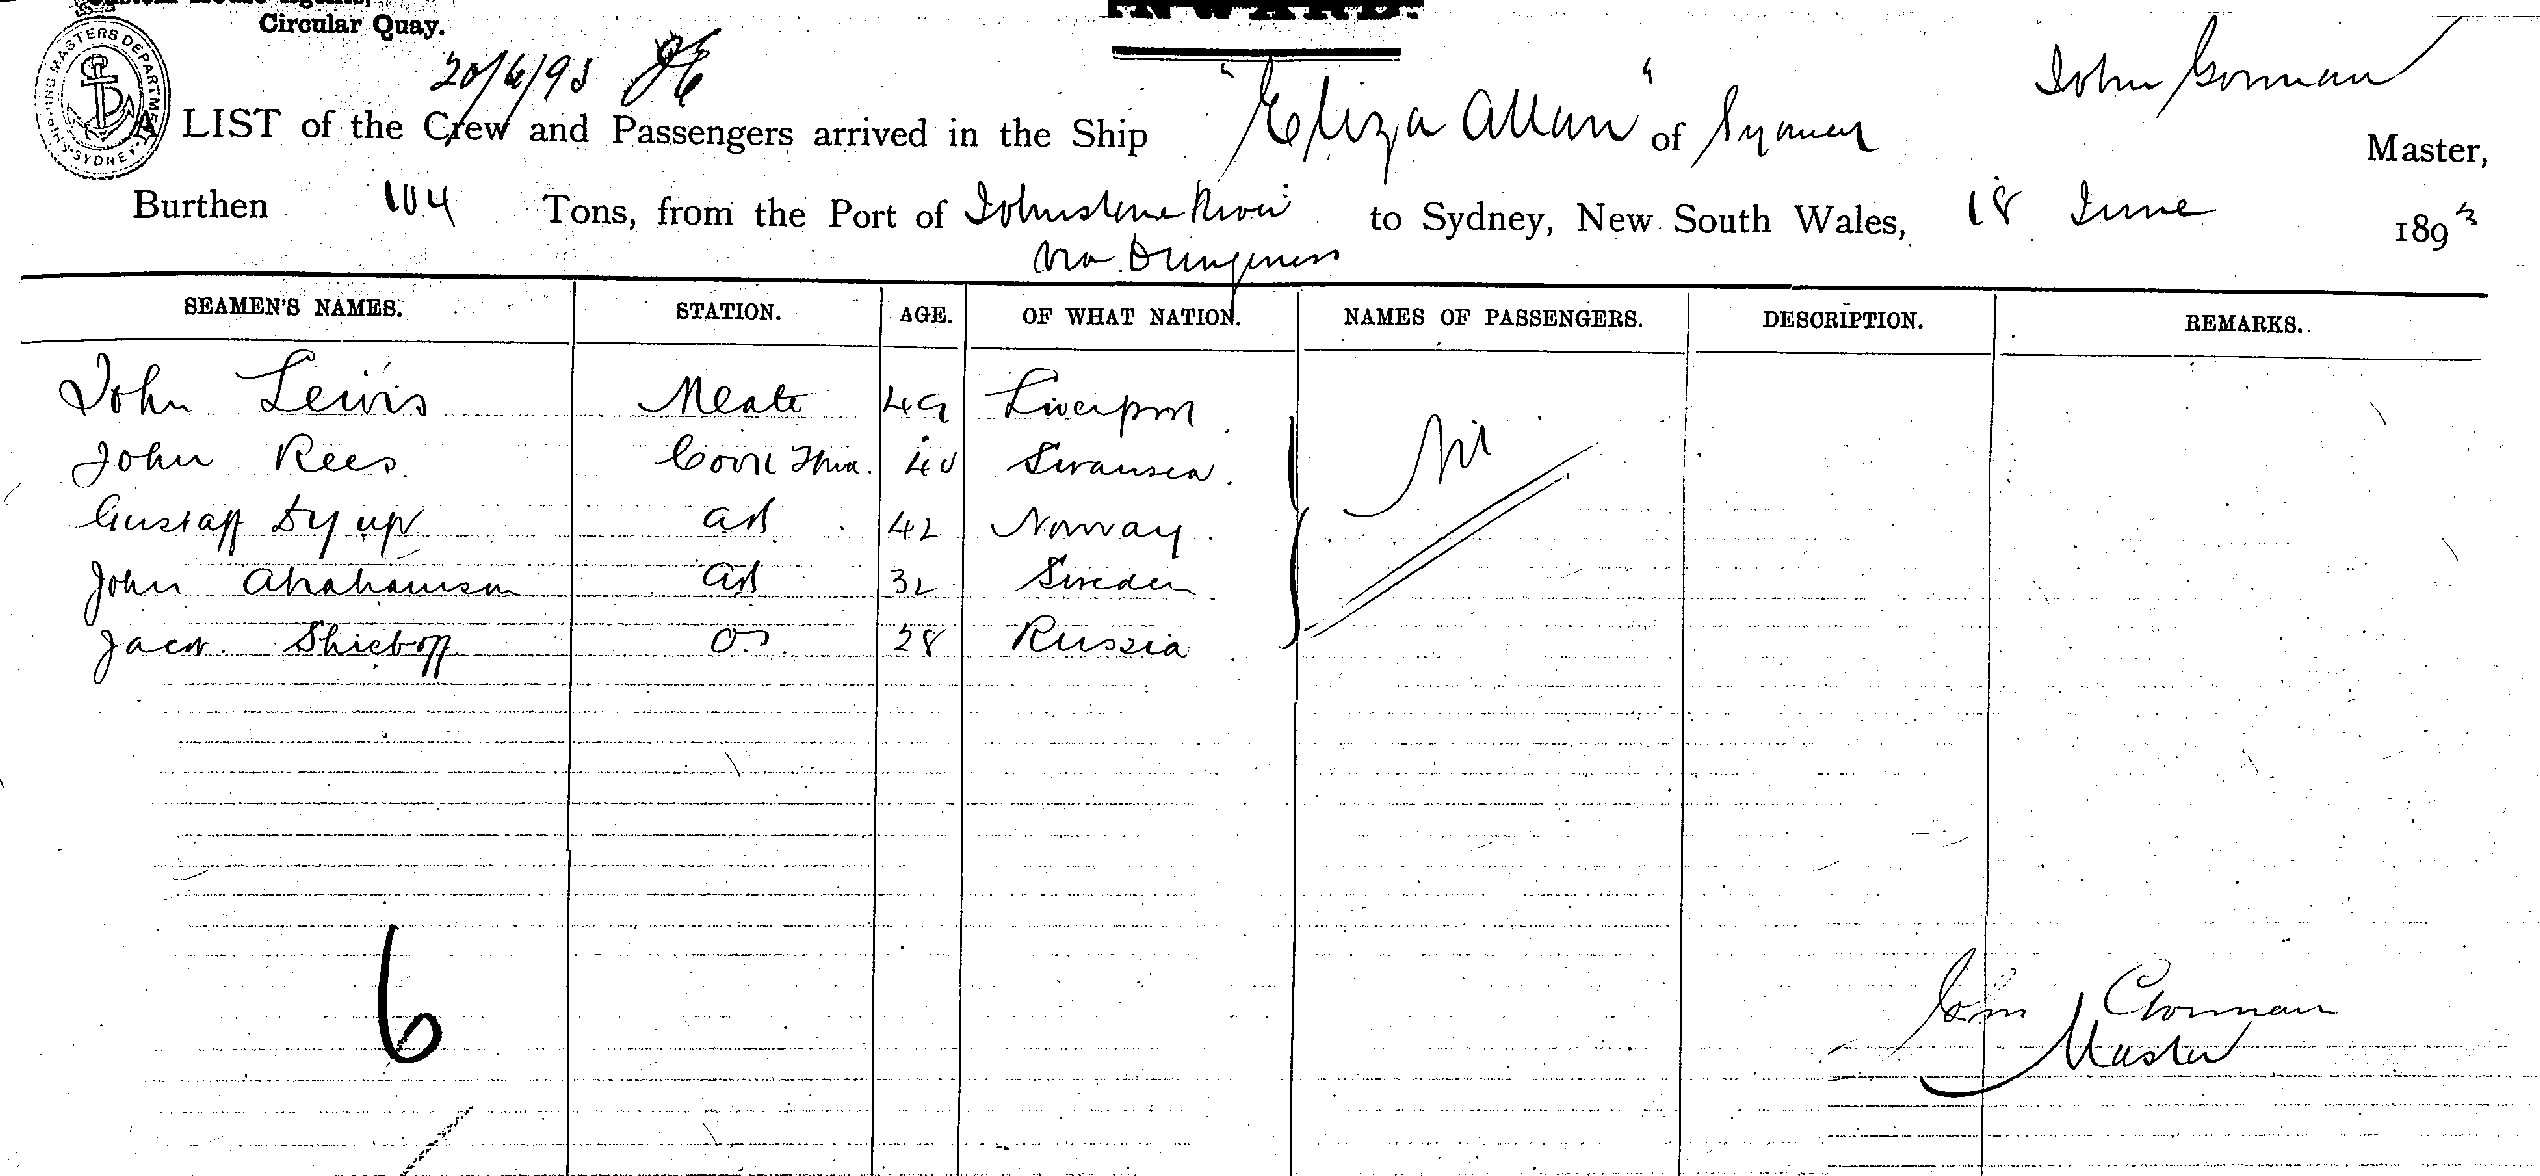 Circular Quay.
INWARD.
SHIPPING MASTERS DEPARTMENT SYDNEY
20/6/93
John Gorman
A LIST of the Crew and Passengers arrived in the Ship "Eliza Allan" of Sydney Master,
Burthen 104 Tons, from the Port of Johnstone River to Sydney, New South Wales, 18 June 1893
via Dungeness
SEAMEN'S NAMES. STATION. AGE. OF WHAT NATION. NAMES OF PASSENGERS. DESCRIPTION. REMARKS.
John Lewis Mate 49 Liverpool
John Rees Cook 40 Swansea.
Gustaff AB 42 Norway.
John Abrahamson AB 32 Sweden
Jacob OS. 28 Russia
Nil
6
John Gorman
Master